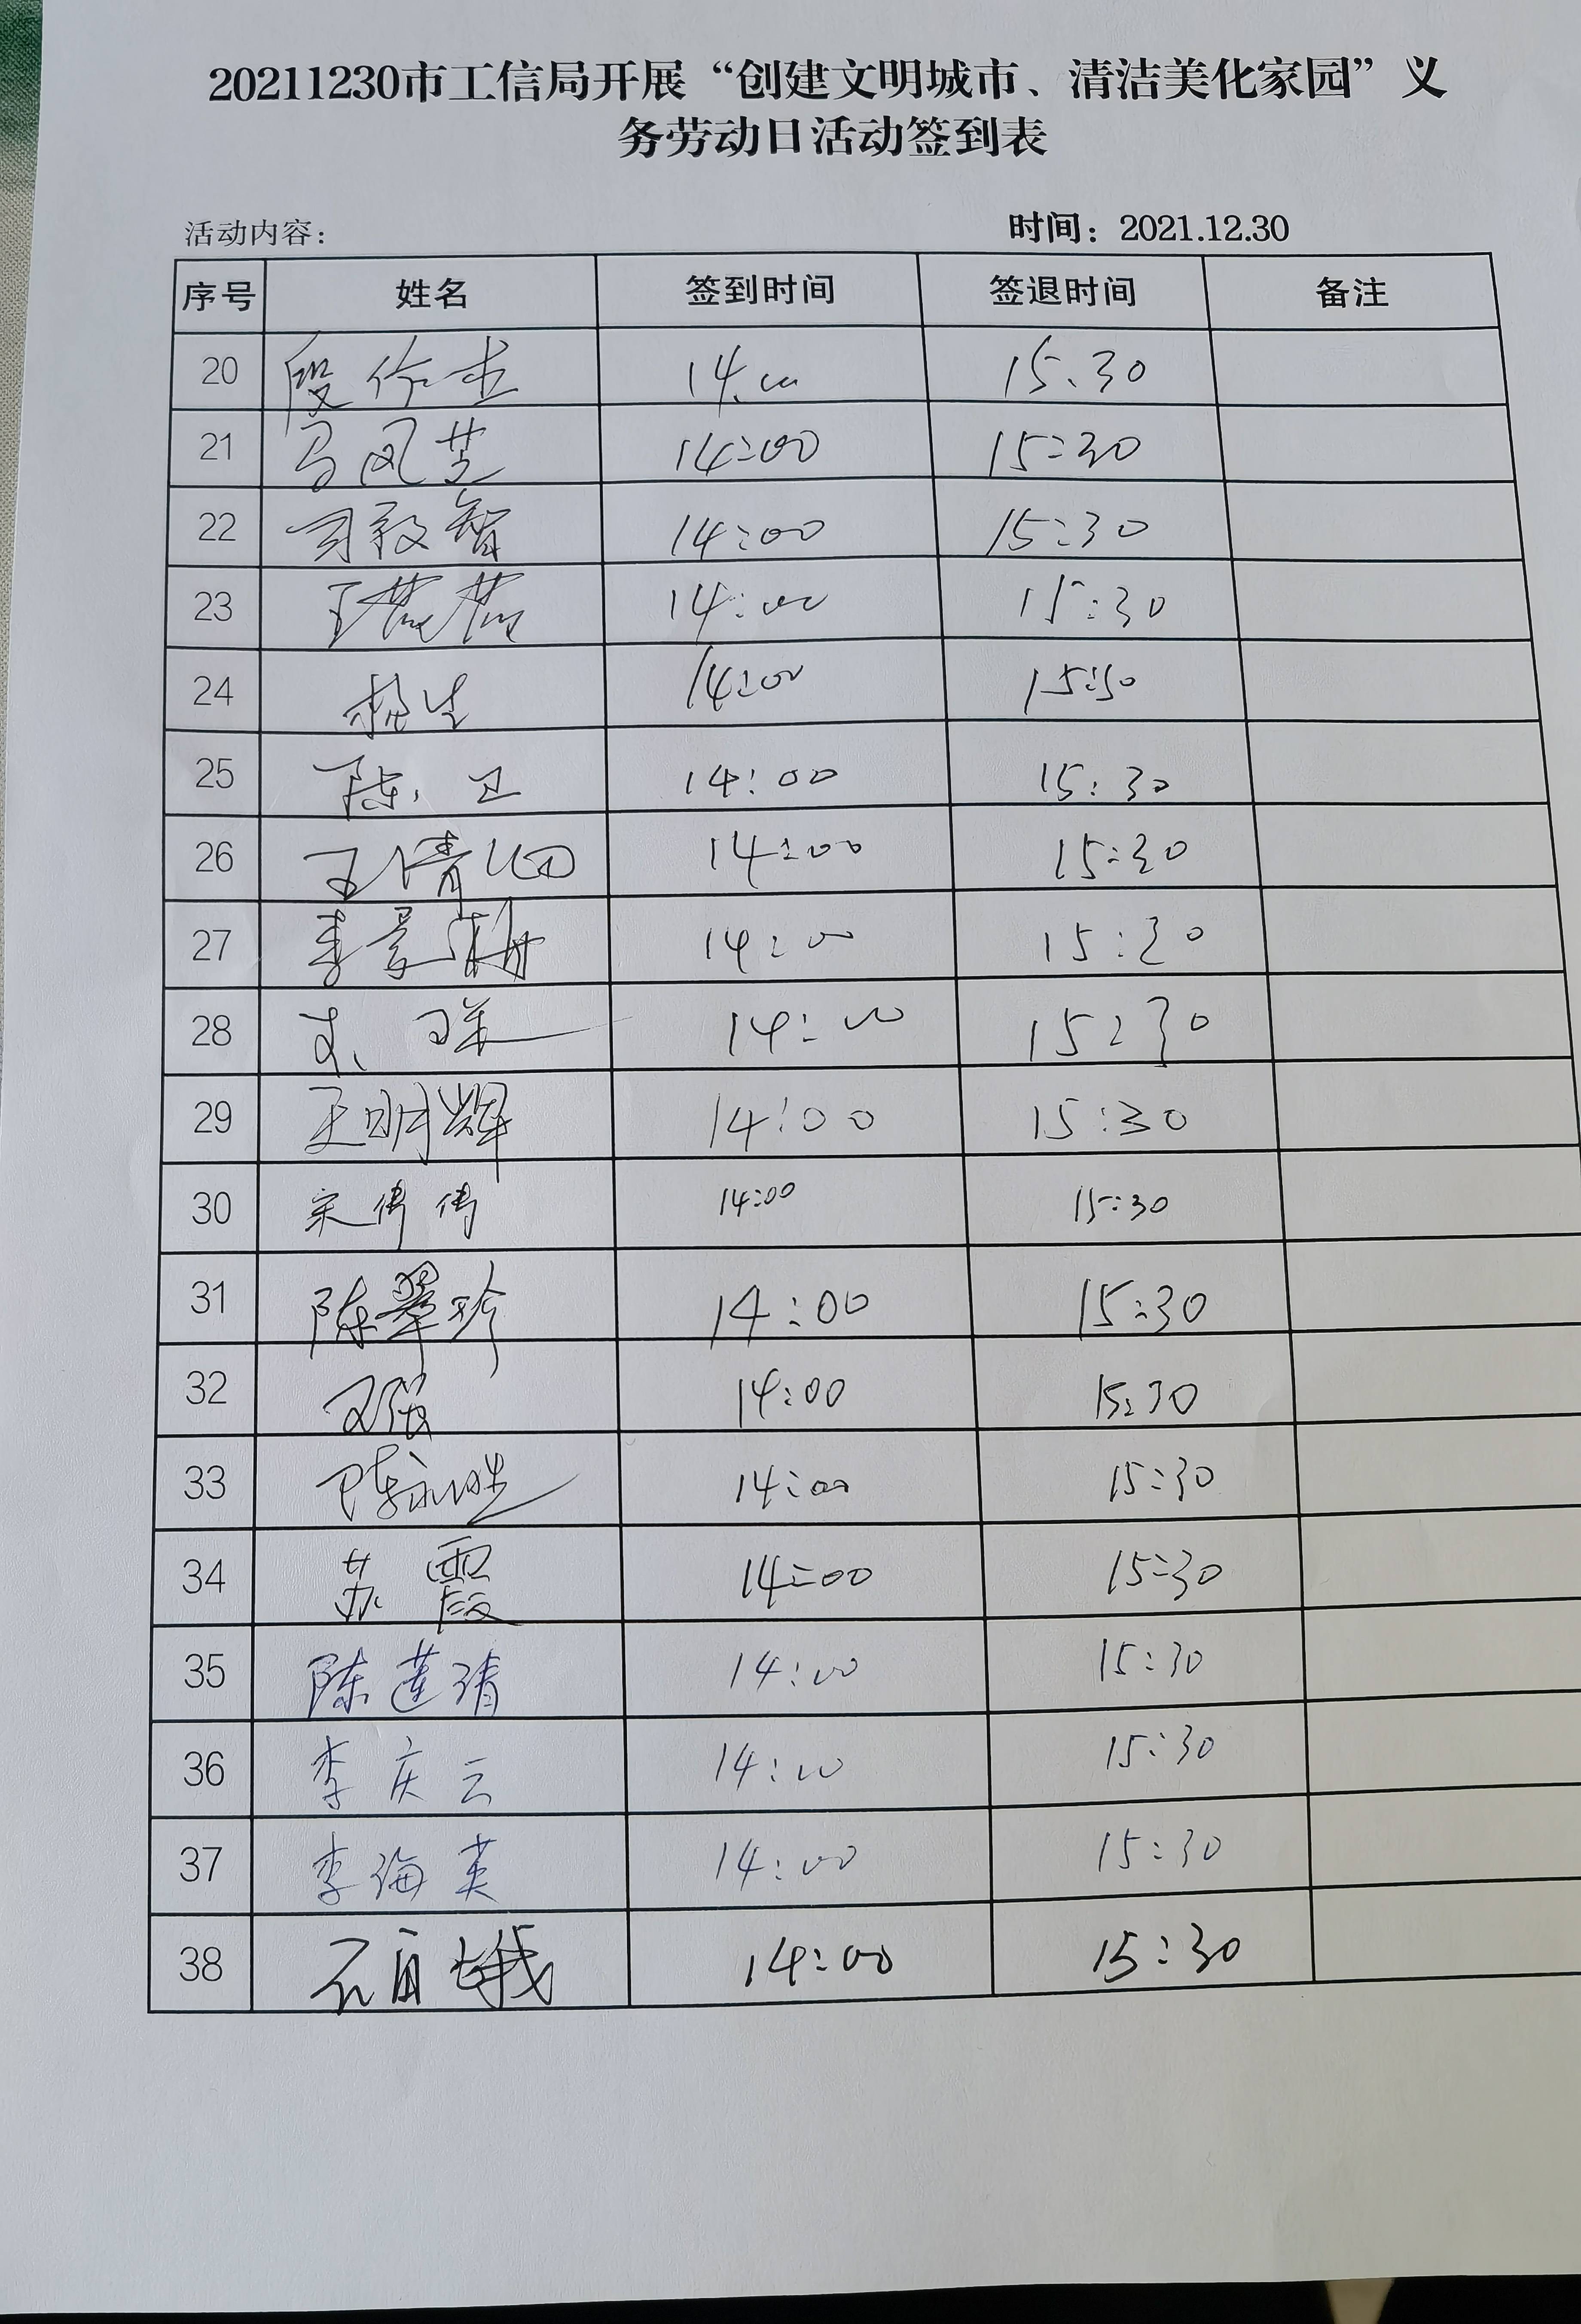 20211230市工信局开展“创建文明城市、清洁美化家园”义
务劳动日活动签到表
活动内容： 时间：2021.12.30
序号 姓名 签到时间 签退时间 备注
20 14.00 15.30
21 马凤芝 14:00 15:30
22 司毅智 14:00 15:30
23 14:00 15:30
24 14:00 15:30
25 陈卫 14:00 15:30
26 王倩如 14:00 15:30
27 李景梅 14:00 15:30
28 14:00 15:30
29 王明辉 14:00 15:30
30 宋伟伟 14:00 15:30
31 陈翠珍 14:00 15:30
32 14:00 15:30
33 14:00 15:30
34 苏霞 14:00 15:30
35 陈莲清 14:00 15:30
36 李庆云 14:00 15:30
37 李海英 14:00 15:30
38 14:00 15:30